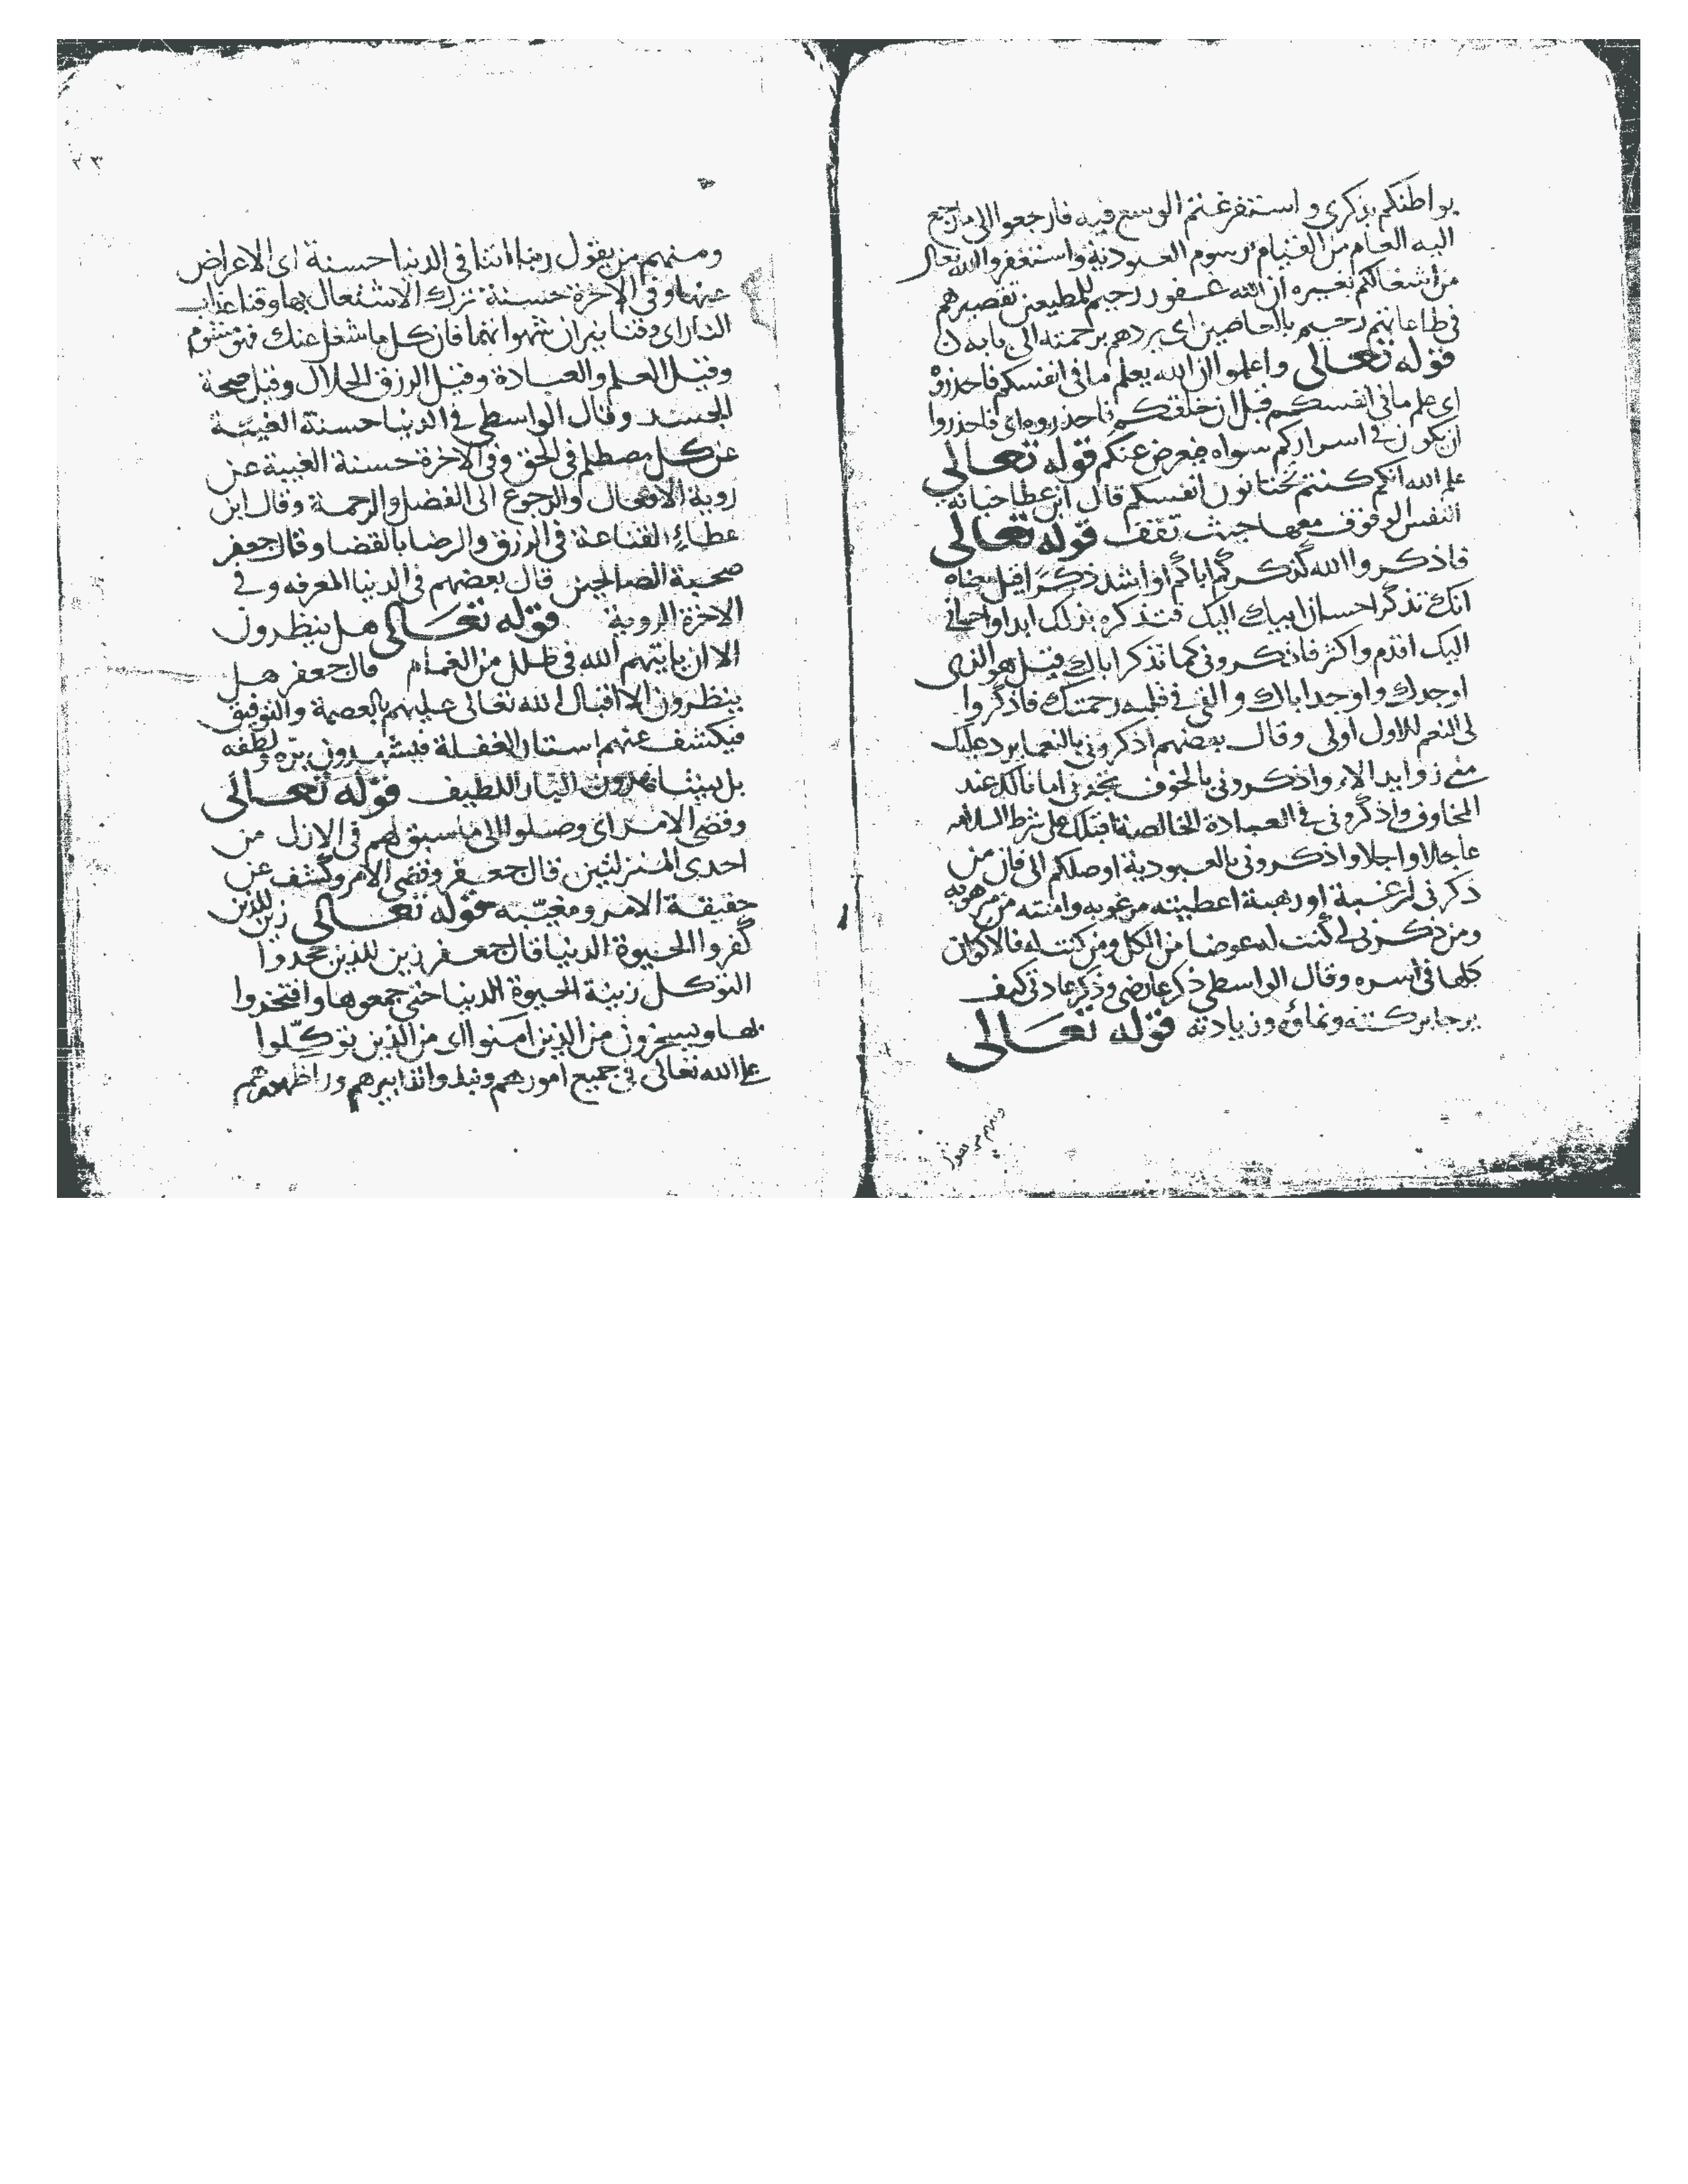 بواطنكم بذكرى و استفرغتم الوسع فيه فارجعوا الى ما رجع
اليه العام من القيام برسوم العبودية واستغفروا الله تعالى
من اشغالكم بغيره ان الله غفور رحيم للمطيعين تقصيرهم
فى طاعاتهم رحيم بالعاصين اى يردهم برحمته الى بابه ن
قوله تعالى واعلموا ان الله يعلم ما فى انفسكم فاحذروه
اى علم ما فى انفسكم قبل ان خلقكم فاحذروه اى فاحذروا
ان يكون فى اسراركم سواه فيعرض عنكم قوله تعالى
علم الله انكم كنتم تختانون انفسكم قال ابن عطا خيانة
النفس الوقوف معها حيث تقف قوله تعالى
فاذكروا الله كذكركم اباكم او اشد ذكرا قيل معناه
انك تذكر احسان ابيك اليك فتذكره بذلك ابدا واحسانى
اليك اقدم واكثر فاذكرونى كما تذكر اباك وقيل هو الذى
اوجدك واوجد اباك والقى فى قلبه رحمتك فاذكروا
لى النعم للاول اولى وقال بعضهم اذكرونى بالنعما يرد عليك
منى زوايد الالاء واذكرونى بالخوف تجدنى امانا لك عند
المخاوف واذكرونى فى العبادة الخالصة اقبلك على شرط السلامه
عاجلا واجلا واذكرونى بالعبودية اوصلكم الى فان من
ذكرنى لرغبة او رهبة اعطيته مرغوبه وامنته من مرهوبه
ومن ذكرنى لى كنت له عوضا من الكل ومن كنت له فالاكوان
كلها فى اسره وقال الواسطى ذكر عارضى وذكر عادتى كيف
يرجا بركته ونماؤه وزيادته قوله تعالى
ومنهم من يقول
٢٣
ومنهم من يقول ربنا اتنا فى الدنيا حسنة اى الاعراض
عنها وفى الاخرة حسنة ترك الاشتغال بها وقنا عذاب
النار اى وقنا نيران شهواتها فان كل ما شغل عنك فهو مشؤم
وقيل العلم والعبادة وقيل الرزق الحلال وقيل صحة
الجسد وقال الواسطى فى الدنيا حسنة الغيبة
عن كل مصطلم فى الحق وفى الاخرة حسنة الغيبة عن
روية الافعال والرجوع الى الفضل والرحمة وقال ابن
عطاء القناعة فى الرزق والرضا بالقضا وقال جعفر
صحبة الصالحين قال بعضهم فى الدنيا المعرفه وفى
الاخرة الروية قوله تعالى هل ينظرون
الا ان ياتيهم الله فى ظلل من الغمام قال جعفر هل
ينظرون الا اقبال الله تعالى عليهم بالعصمة والتوفيق
فيكشف عنهم استار الغفلة فيشهدون بره ولطفه
بل يشاهدون البار اللطيف قوله تعالى
وقضى الامر اى وصلوا الى ما سبق لهم فى الازل من
احدى المنزلتين قال جعفر وقضى الامر وكشف عن
حقيقة الامر ومغيبه قوله تعالى زين للذين
كفروا الحيوة الدنيا قال جعفر زين للذين جحدوا
التوكل زينة الحيوة الدنيا حتى جمعوها وافتخروا
بها ويسخرون من الذين امنوا اى من الذين توكلوا
على الله تعالى فى جميع امورهم ونبذوا تدابيرهم ورا ظهورهم